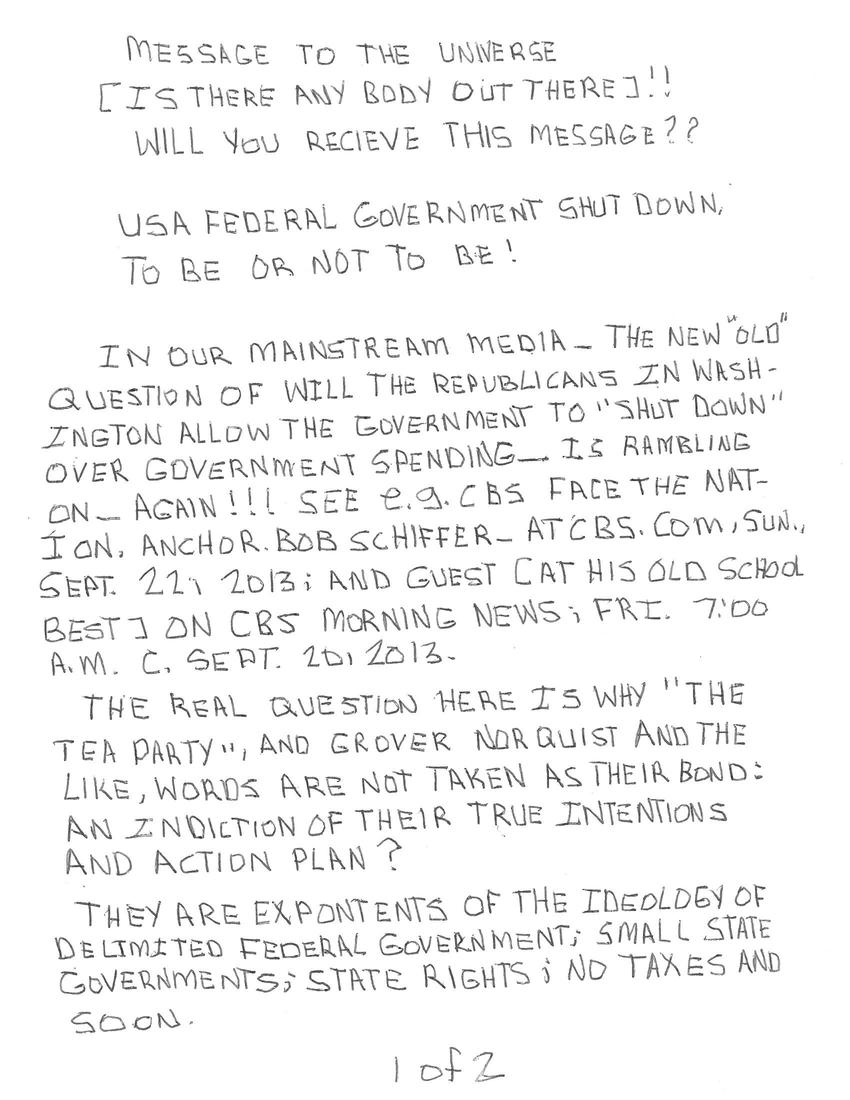 MESSAGE TO THE UNIVERSE
[IS THERE ANY BODY OUT THERE]!!
WILL YOU RECIEVE THIS MESSAGE??
USA FEDERAL GOVERNMENT SHUT DOWN,
TO BE OR NOT TO BE!
IN OUR MAINSTREAM MEDIA_ THE NEW "OLD"
QUESTION OF WILL THE REPUBLICANS IN WASH-
INGTON ALLOW THE GOVERNMENT TO "SHUT DOWN"
OVER GOVERNMENT SPENDING_. IS RAMBLING
ON_ AGAIN!!! SEE e.g. CBS FACE THE NAT-
ION, ANCHOR. BOB SCHIFFER_ AT CBS. COM, SUN.,
SEPT. 22, 2013; AND GUEST [AT HIS OLD SCHOOL
BEST] ON CBS MORNING NEWS; FRI. 7:00
A.M. C. SEPT. 20, 2013.
THE REAL QUESTION HERE IS WHY "THE
TEA PARTY", AND GROVER NORQUIST AND THE
LIKE, WORDS ARE NOT TAKEN AS THEIR BOND:
AN INDICTION OF THEIR TRUE INTENTIONS
AND ACTION PLAN?
THEY ARE EXPONTENTS OF THE IDEOLOGY OF
DELIMITED FEDERAL GOVERNMENT; SMALL STATE
GOVERNMENTS; STATE RIGHTS; NO TAXES AND
SOON.
1 of 2